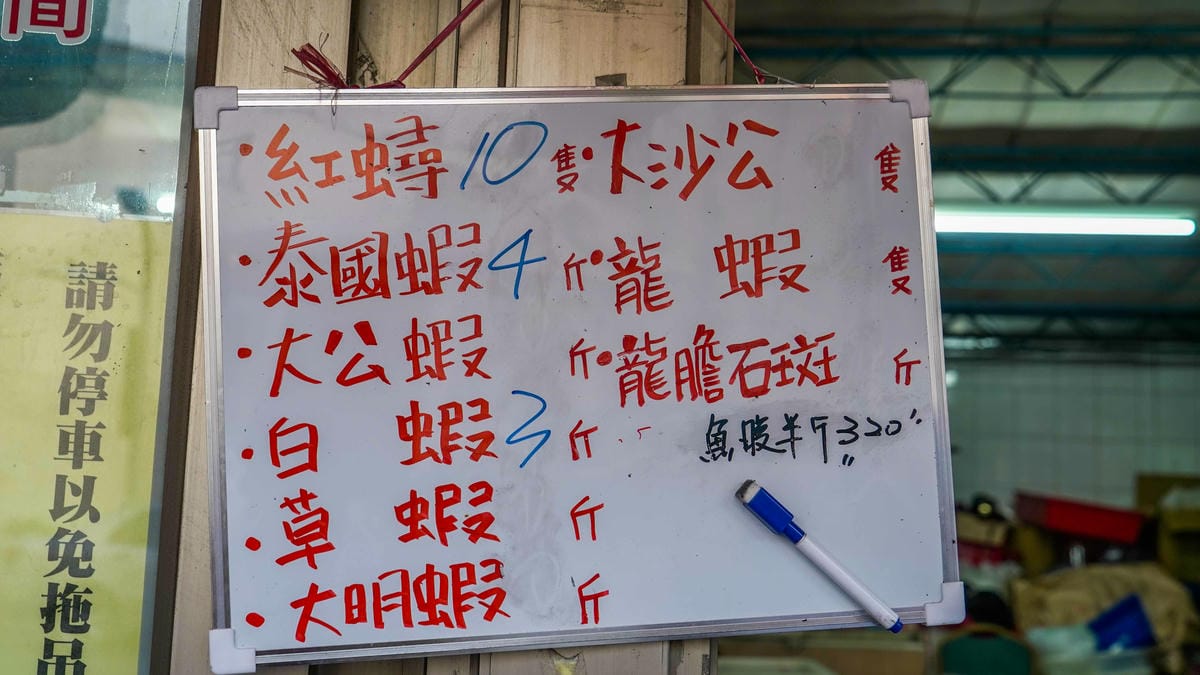 間
請勿停車以免拖吊
·紅蟳 10 隻
·泰國蝦 4 斤
·大公蝦 斤
·白蝦 3 斤
·草蝦 斤
·大明蝦 斤
·大沙公 隻
·龍蝦 隻
·龍膽石斑 斤
半斤320"